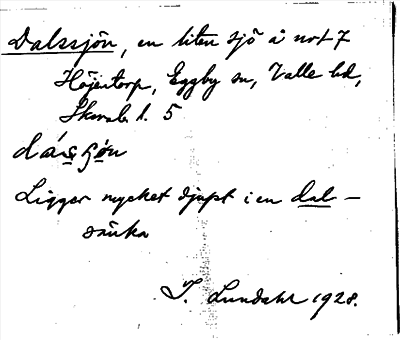 Dalssjön, en liten sjö å nr 7
Höjentorp, Eggby sn, Valle hd,
Skarab. l. 5
dás̱ʃö̱n
Ligger mycket djupt i en dal-
sänka
I. Lundahl 1928.